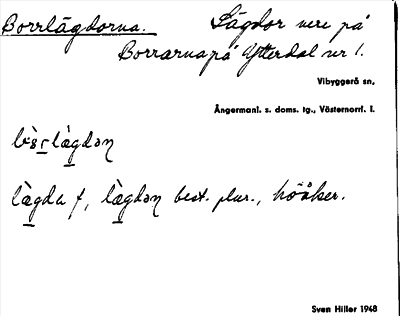 Borrlägdorna. Lägdor nere på
Borrarna på Ytterdal nr 1.
Vibyggerå sn,
Ångermanl. s. doms. tg., Västernorrl. l.
lägda f, lägdən best. plur., höåker.
Sven Hiller 1948